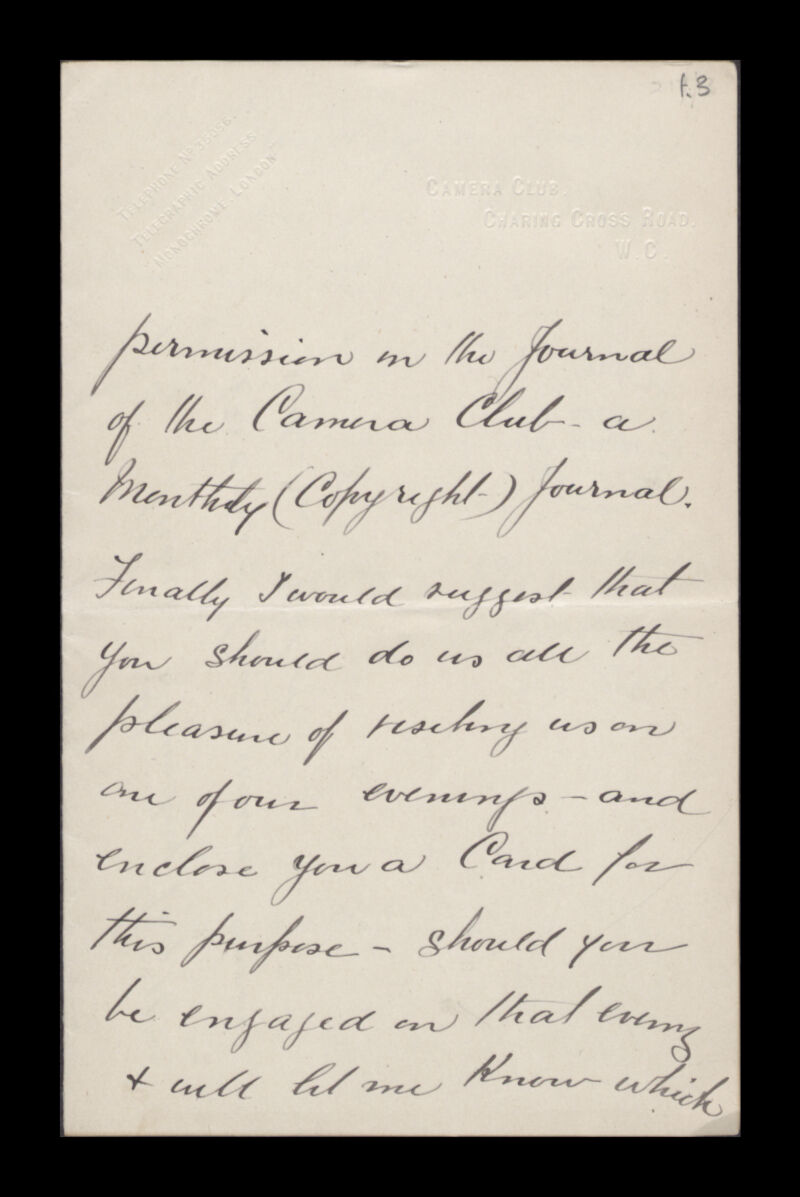 f.3
TELEPHONE No 35056.
TELEGRAPHIC ADDRESS
"MONOCHROME. LONDON"
CAMERA CLUB.
CHARING CROSS ROAD.
W.C.
permission in the Journal
of the Camera Club - a
Monthly (Copyright) Journal.
Finally I would suggest that
you should do us all the
pleasure of visiting us on
one of our evenings - and
enclose you a Card for
this purpose - should you
be engaged on that evening
& will let me know which